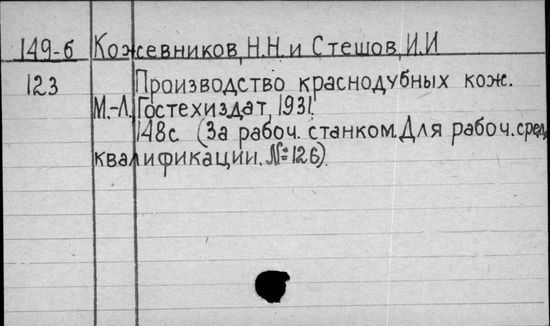 149-б Кожевников, Н.Н. и Стешов, И.И
123 Производство краснодубных кож.
М.-Л., Гостехиздат, 1931.
148с. (За рабоч. станком. Для рабоч. сред.
квалификации. №126).